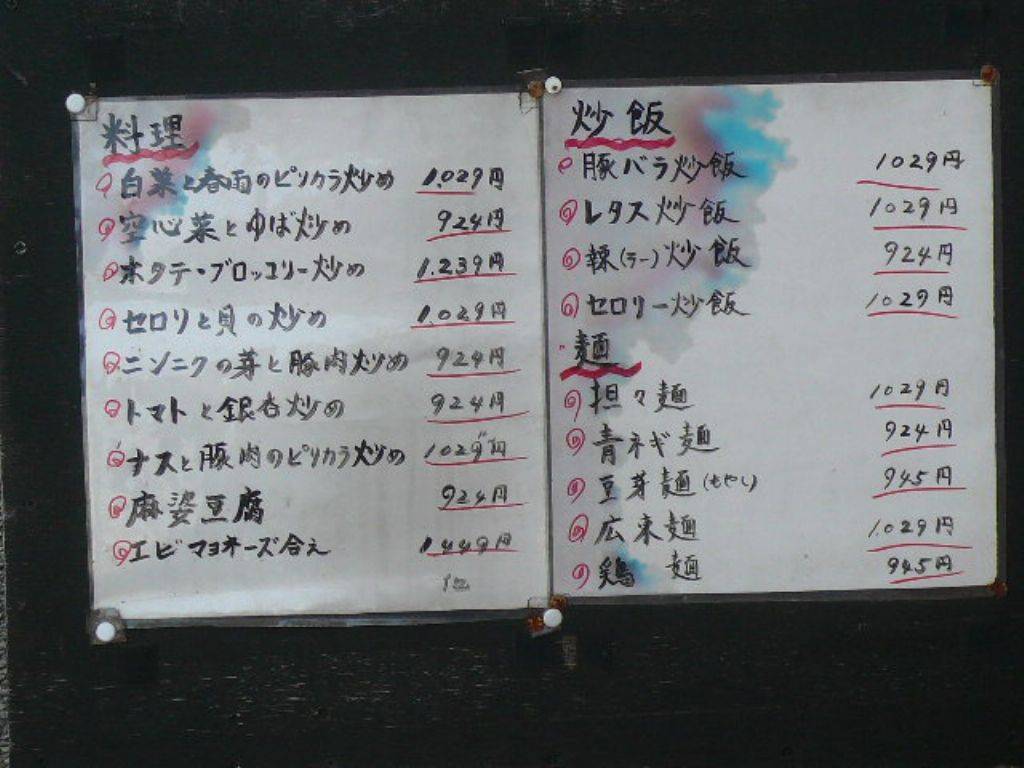 料理
白菜と春雨のピリカラ炒め 1.029円
空心菜とゆば炒め 924円
ホタテ・ブロッコリー炒め 1.239円
セロリと貝の炒め 1.029円
ニンニクの芽と豚肉炒め 924円
トマトと銀杏炒め 924円
ナスと豚肉のピリカラ炒め 1029円
麻婆豆腐 924円
エビマヨネーズ合え 1449円
炒飯
豚バラ炒飯 1029円
レタス炒飯 1029円
辣(ラー)炒飯 924円
セロリー炒飯 1029円
麺
担々麺 1029円
青ネギ麺 924円
豆芽麺(もやし) 945円
広東麺 1.029円
鶏麺 945円